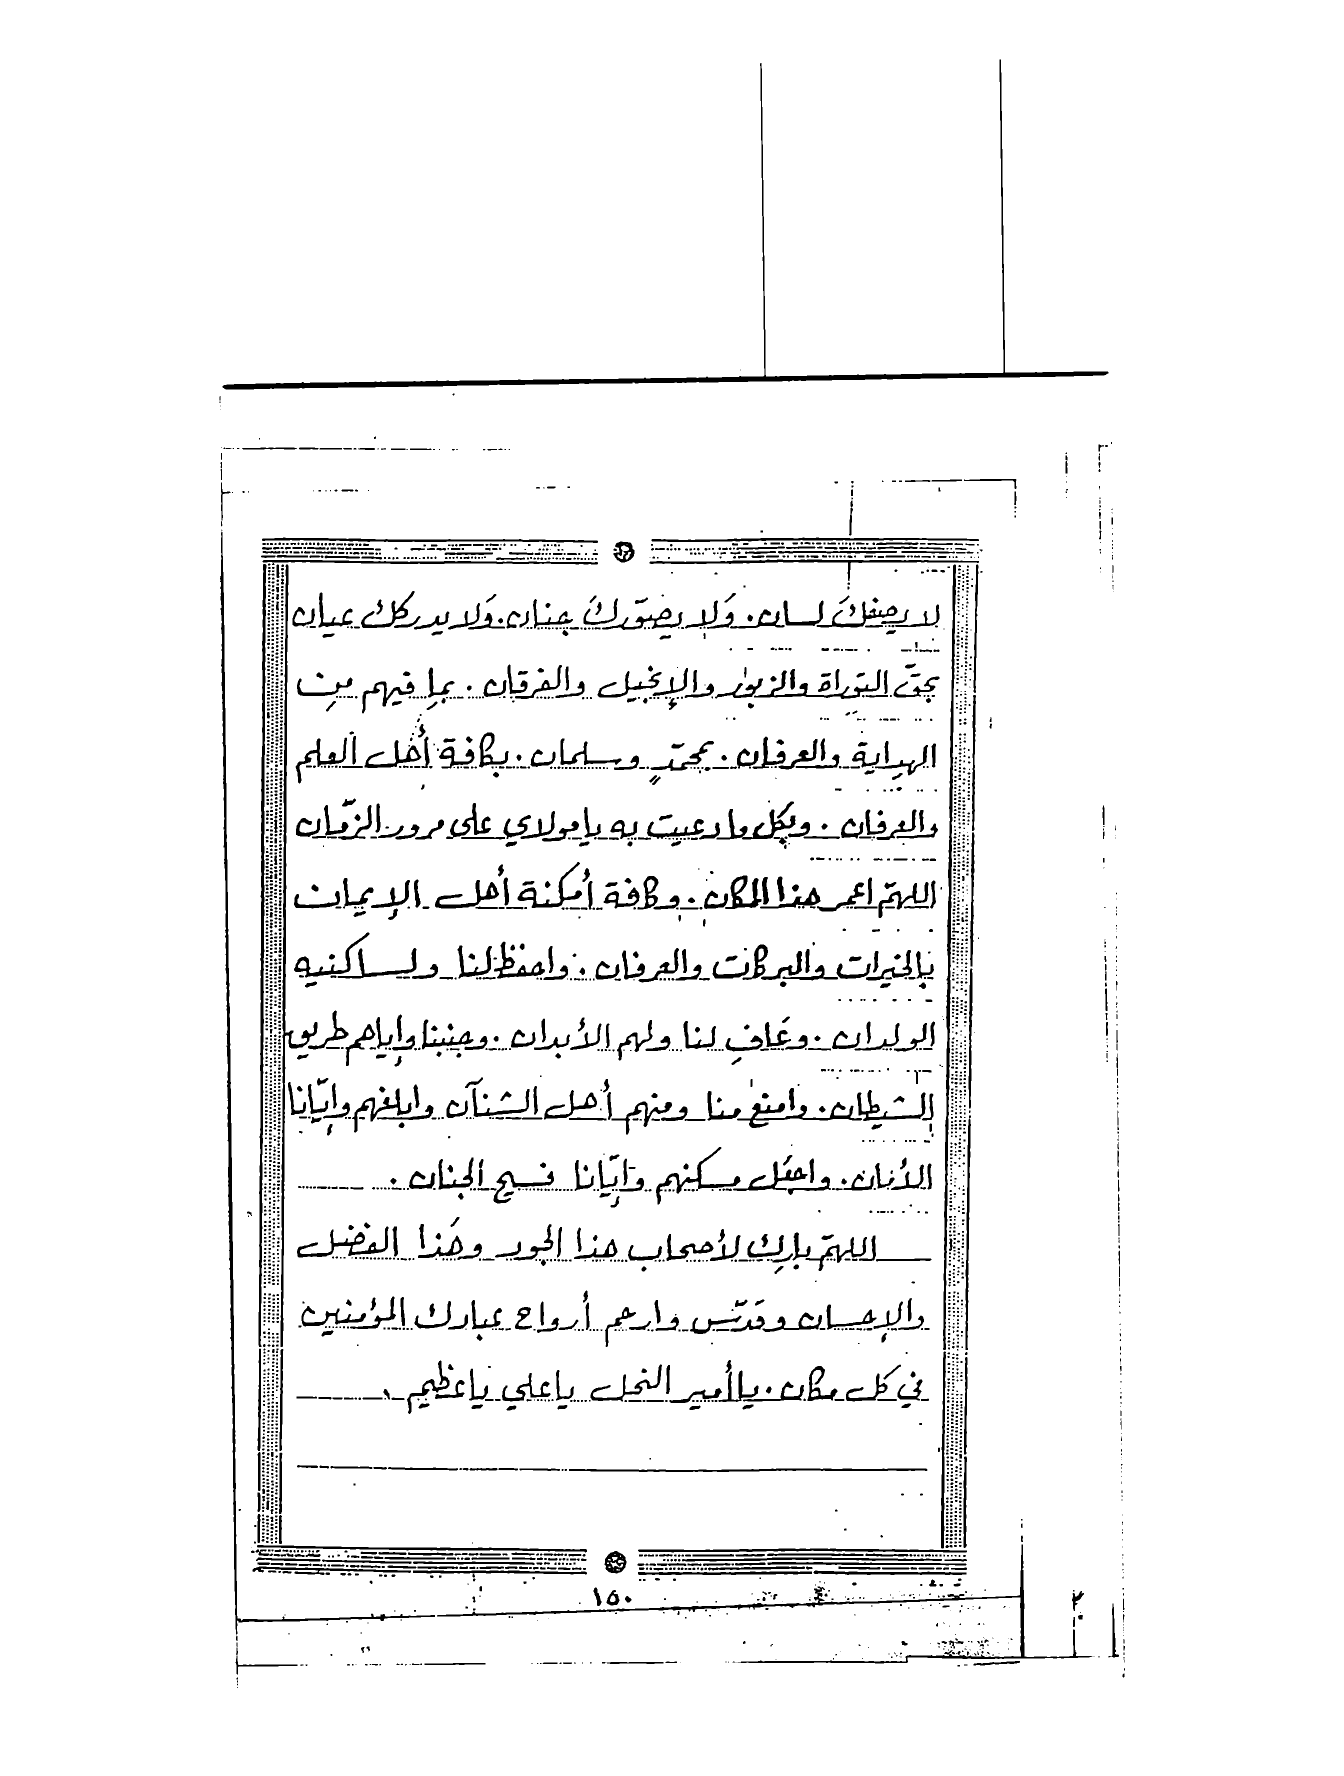 لا يصفكَ لسان. وَلا يصوّركَ جنان. وَلا يدركك عيان
بحقّ التوراة والزبور والإنجيل والفرقان. بما فيهم مِن
الهداية والعرفان. بمحمّدٍ وسلمان. بكافة أهل العلم
والعرفان. وبكل ما دعيت به يا مولاي على مرور الزمّان
اللهمّ اعمر هذا المكان. وكافة أمكنة أهل الإيمان
بالخيرات والبركات والعرفان. واحفظ لنا ولساكنيه
الولدان. وعَافِ لنا ولهم الأبدان. وجنبنا وإياهم طريق
الشيطان. وامنع منا ومنهم أهل الشنآن وابلغهم وإيّانا
الأمان. واجعَل مسكنهم وَإيّانا فسيح الجنان.
اللهمّ بارِك لأصحاب هذا الجود وهَذا الفضل
والإحسان وقدّس وارحم أرواح عبادك المؤمنين
في كل مكان. يا أمير النحل يا علي يا عظيم.
١٥٠